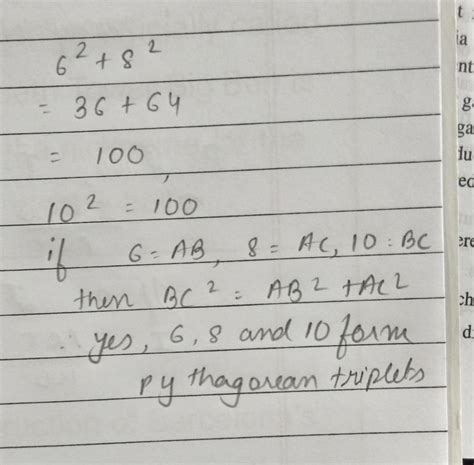 6² + 8²
= 36 + 64
= 100,
10² = 100
if 6 = AB, 8 = AC, 10 = BC
then BC² = AB² + AC²
∴ yes, 6, 8 and 10 form
pythagorean triplets